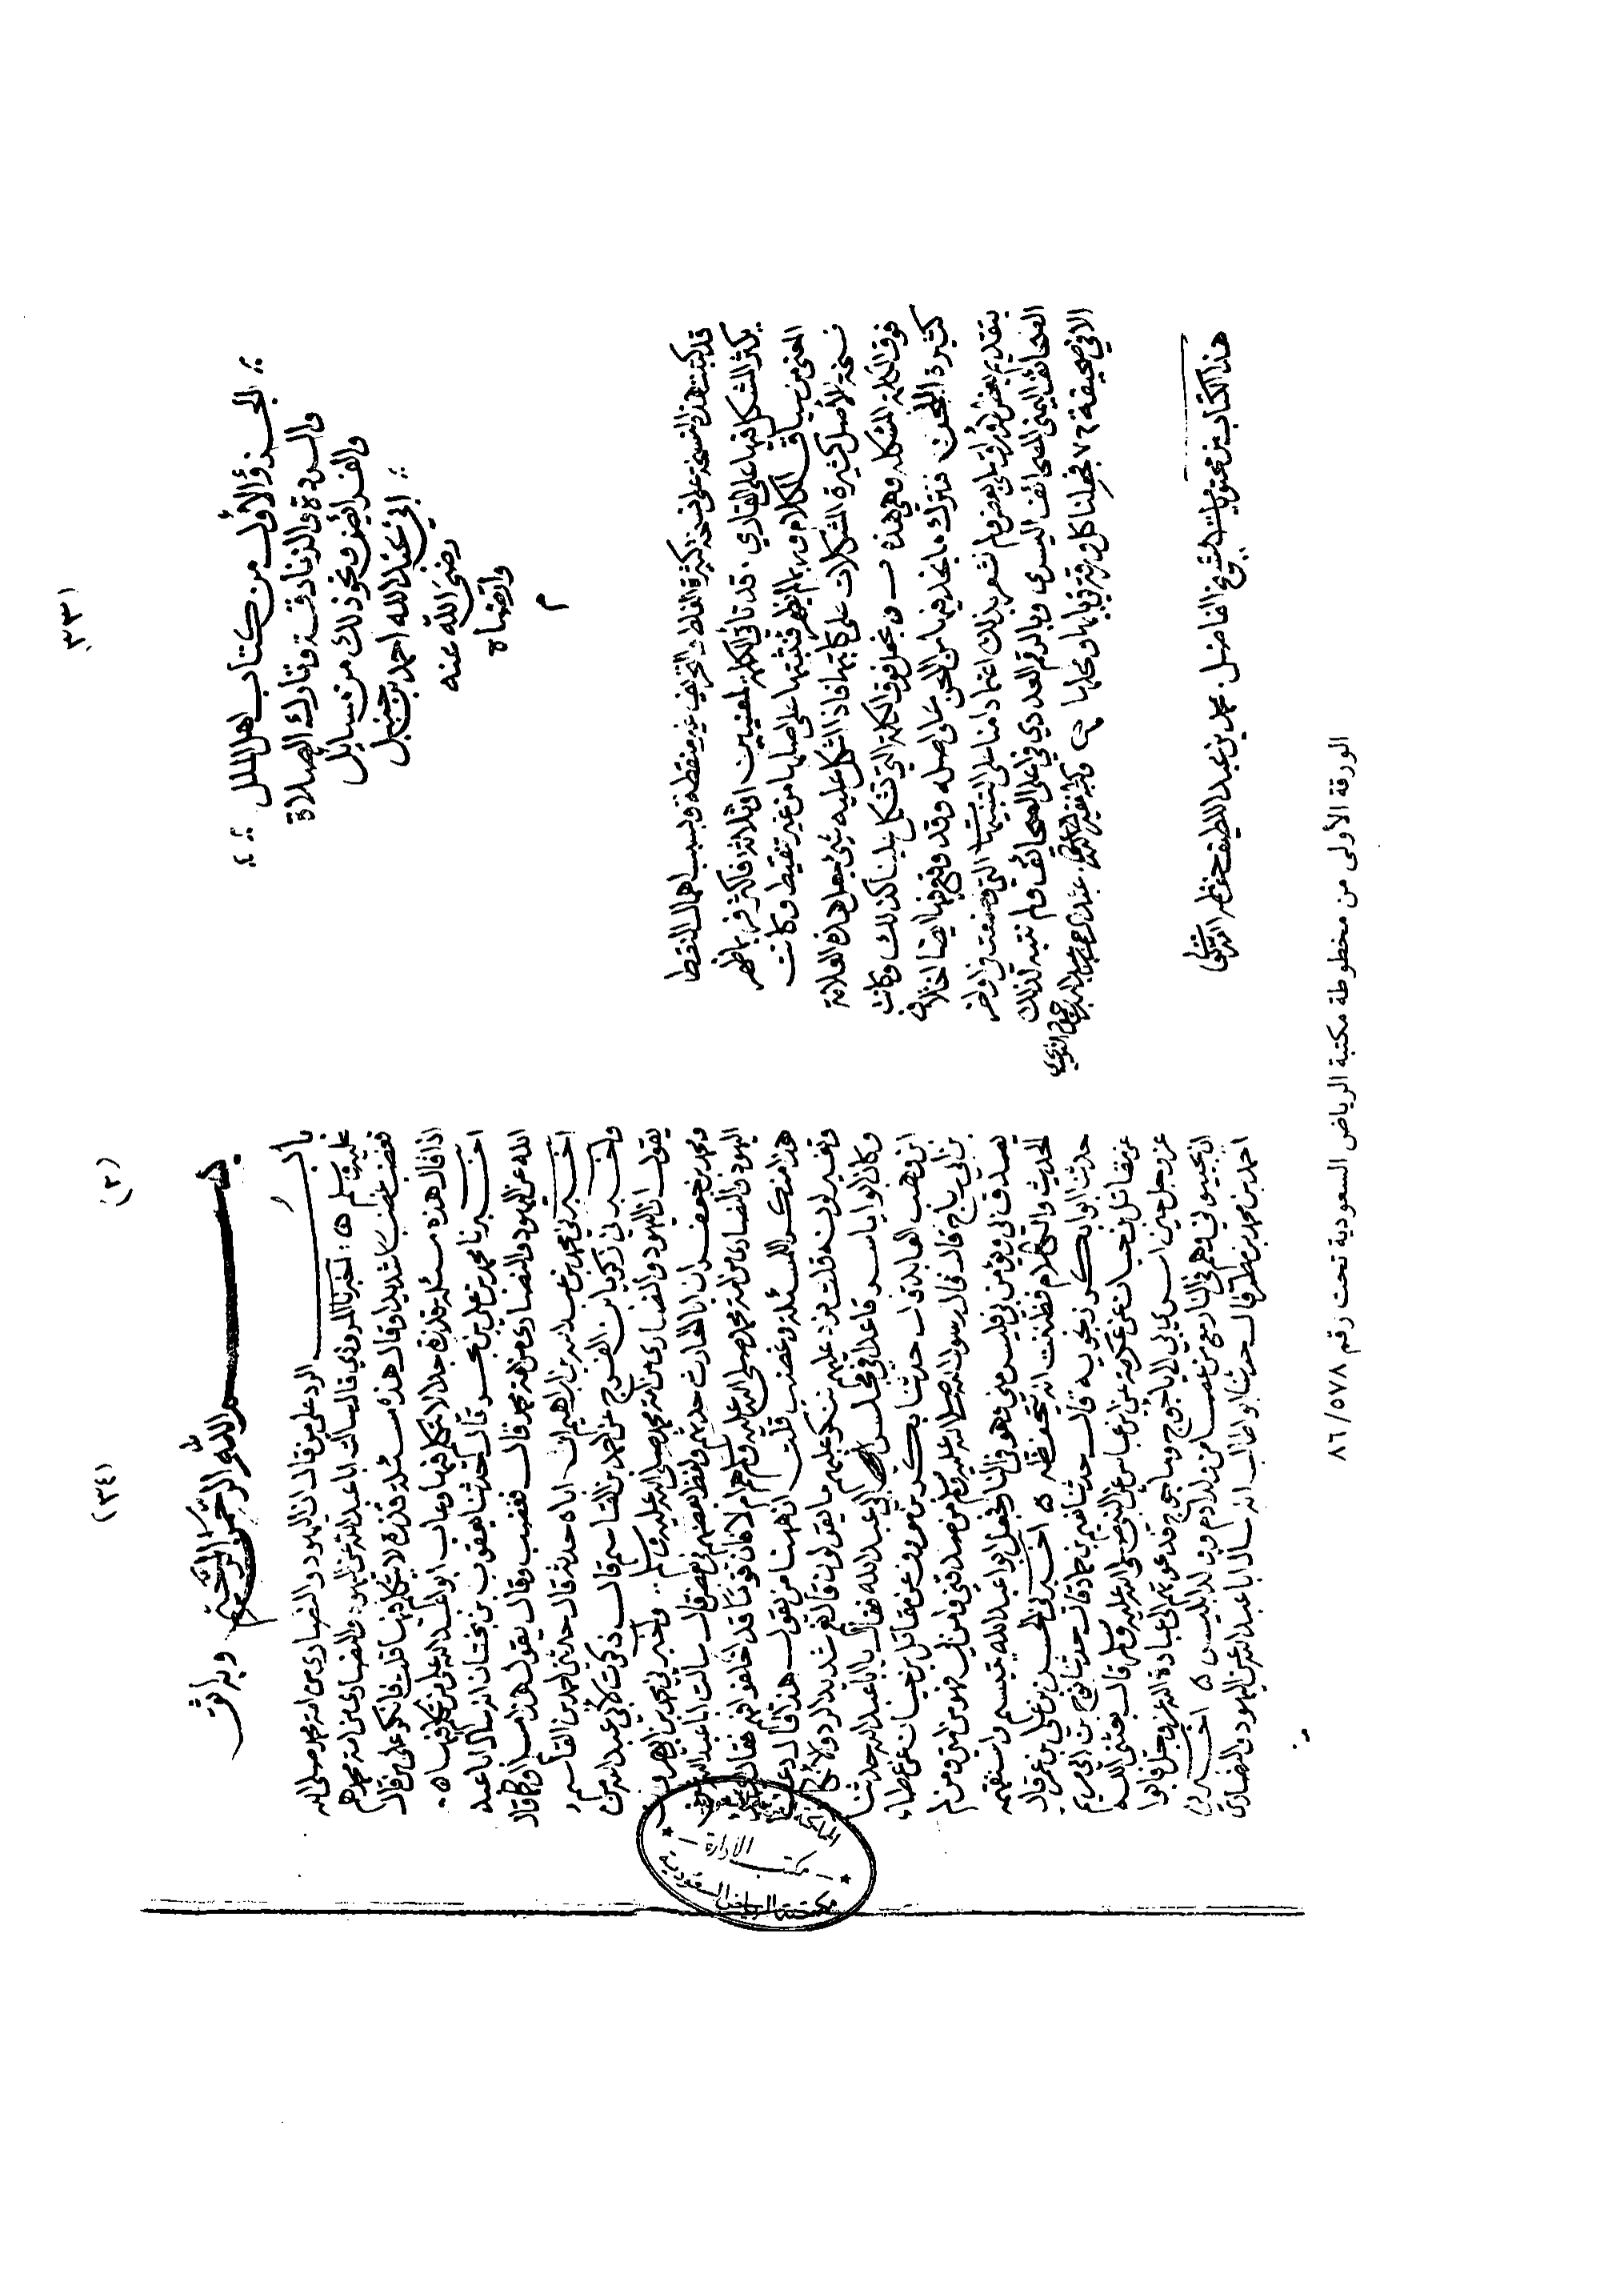 ٣٣١
الجزؤ الأول من كتاب اهل الملل
والردة والزنادقة وتارك الصلاة
والفرائض ونحو ذلك من مسايل
ابي عبد الله احمد بن حنبل
رضي الله عنه
وارضاه
م
قد كتبت هذه النسخة على نسخة كثيرة الغلط والتحريف غير منقطة وبسبب اهمال النقط
يكثر المشكل فيها على القاري. قد تأتي الكلمة لمعنيين او ثلاثة فاكثر فربما ظهر
المعنى من سياق الكلام وربما لم يظهر فنثبتها على اصلها من غير تنقيط وكانت
نسخة الأصل كثيرة المشكلات على كاتبها فاذا اشكل عليه شيء جعل هذه العلامة
فوق الكلمة المشكله وهي هذه ونجعل فوق الكلمة التي تشكل علينا كذلك وكانت
كثيرة اللحن فنترك ما نجد فيها من اللحن على اصله وقد وقع فيها ايضا اختلاف
بتقديم بعض الاوراق على بعض ولم نشعر بذلك اعتمادا منا على التي وضعت في اواخر
الصحائف اليمنى للصحائف اليسرى وبالرقم العددي في اعلى الصحائف ولم ننتبه لذلك
الا في صحيفة ٧٦ فجعلنا كل ورقة في بابها ومحلها
هذا الكتاب من محتويات الشيخ الفاضل. محمد بن عبد اللطيف حفظه الله تعالى
(٢)
(٣٤)
بسم الله الرحمن الرحيم وبه اثق
باب الرد على من قال ان اليهود والنصارى من امة محمد صلى الله
عليه وسلم ٥ اخبرنا المروذي قال سألت ابا عبد الله عن اليهود والنصارى من امة محمد هم
فغضب غضبا شديدا وقال هذه مسئلة قذرة لا يتكلم فيها قلت فانكر على من قال
اذا قال هذه مسئلة قذرة جدا لا تكلم فيها وعاب ابو عبد الله على من تكلم فيها ٥
اخبرنا محمد بن علي بن بحر قال حدثنا يعقوب بن بختان انه سأل ابا عبد
الله عن اليهود والنصارى من امة محمد قال فغضب وقال يقول هذا مسلم او كما قال
اخبرني محمد بن عبد الله بن ابراهيم ان اباه حدثه قال حدثني احمد بن القاسم
واخبرني زكريا بن الفرج عن احمد بن القاسم قال ذكرت لأبي عبد الله من
يقول ان اليهود والنصارى من امة محمد صلى الله عليه وسلم .. واخبرني
ومحمد بن جعفر ان ابا الحارث حدثهم ولفظ بعضهم في بعض قال سألت ابا عبد الله عن
اليهود والنصارى من امة محمد صلى الله عليه وسلم هم لا فان قوما قد اختلفوا فيهم فقال
هذا منكر المسئلة وغضب قلت ان ههنا من يقول هذا قال
وتغير لونه قلت نرد عليهم ننكر عليهم ما يقولون قال نعم شديد الرد
وكان ابو ياسر قاعدا في مجلس ابي عبد الله فقال يا ابا عبد الله حدثنا
ابن وهب العابد قال حدثنا بكر بن معروف عن مقاتل بن حيان عن عطاء
بن ابي رباح قال قال رسول الله صلى الله عليه وسلم من صدقني وامن بي فهو من امتي ومن لم
يصدقني ويؤمن بي فليس مني وهو في النار فجعل ابو عبد الله يتبسم واستفهمه
الحديث والكلام فظننت انه يتحفظه ٥ اخبرني الحسن بن علي بن عمر قال
حدثنا ابو بكر زنجويه قال حدثنا نعيم بن حماد قال حدثنا نوح بن ابي مريم
عن مقاتل بن حيان عن عكرمة عن ابن عباس عن النبي صلى الله عليه وسلم قال بعثني الله
عز وجل حين اسري بي الى ياجوج وماجوج فدعوتهم الى عبادة الله عز وجل فابوا
ان يجيبوني وهم في النار مع من عصا من ولد آدم وولد ابليس ٥ اخبرني
احمد بن محمد بن مطر قال حدثنا ابو طالب انه سأل ابا عبد الله عن اليهود والنصارى
الورقة الأولى من مخطوطة مكتبة الرياض السعودية تحت رقم ٨٦/٥٧٨